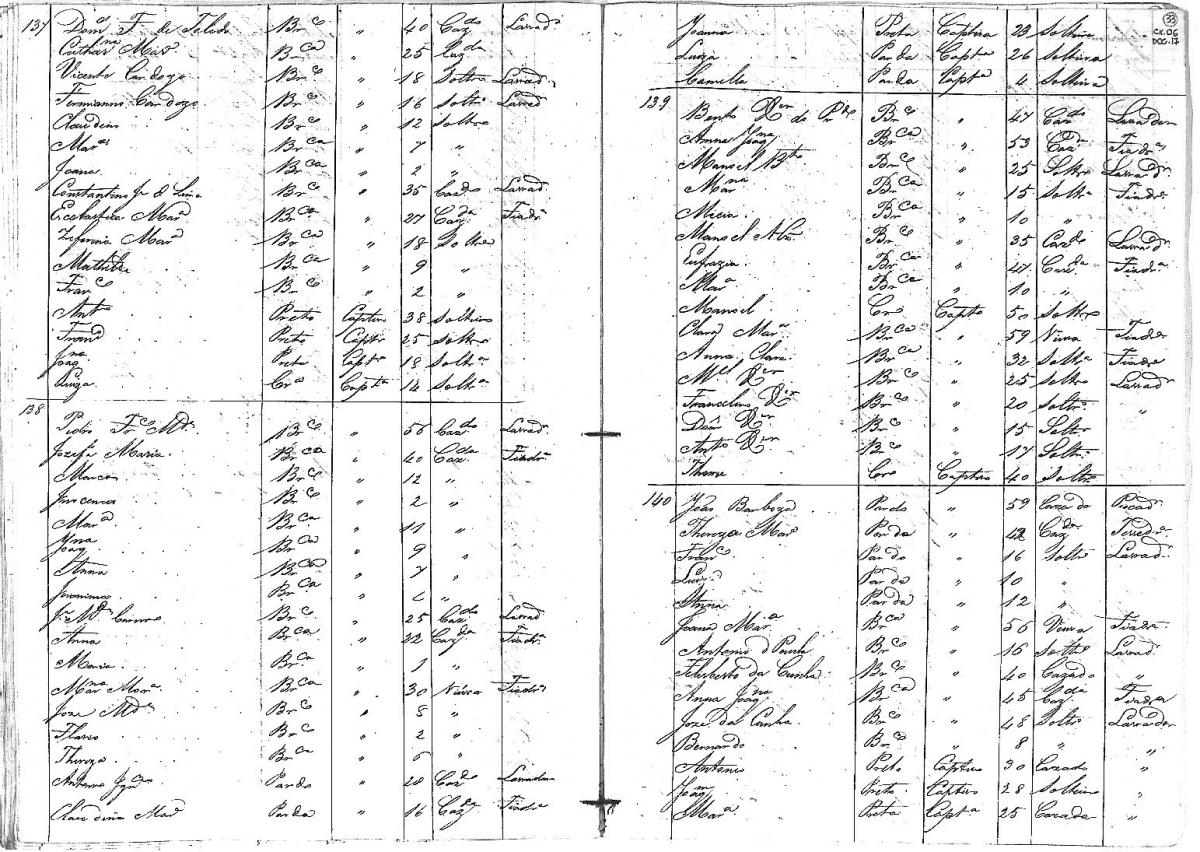 137 Dom.os F. de Toledo Br.co " 40 Caz.do Lavrad.
Cathar.na Mar.a Br.ca " 25 Caz.da
Vicente Cardozo Br.co " 18 Soltro Lavrad.
Firmianno Cardozo Br.co " 16 Soltr.o Lavrad.
Claudino Br.co " 12 Soltro
Mar.a Br.ca " 7 "
Joana Br.ca " 2 "
Constantino Jr. de Lima Br.co " 35 Caz.do Lavrad.
Escolastica Mar.a Br.ca " 27 Caz.da Fiadr.a
Zeferina Mar.a Br.ca " 18 Soltra
Mathilde Br.ca " 9 "
Fran.co Br.co " 2 "
Ant.o Preto Captivo 38 Solteiro
Preto Captv.o 25 Soltro
Joaq.na Preta Capt.a 18 Soltr.a
Luiza Cr.a Capt.a 14 Solt.a
138 Pedro Fr.co Br.co " 56 Caz.do Lavrad.
Jozefa Maria Br.ca " 40 Caz.da Fiadr.a
Marcos Br.co " 12 "
Innocencio Br.co " 2 "
Mar.a Br.ca " 11 "
Joaq.na Br.ca " 9 "
Anna Br.ca " 7 "
Jeronima Br.ca " "
Br.co " 25 Caz.do Lavrad.
Anna Br.ca " 22 Caz.da Fiadr.a
Maria Br.ca " 1 "
Mar.a Br.ca " 30 Viuva Fiadr.a
Joze Br.co " 8 "
Br.co " 2 "
Thereza Br.ca " 6 "
Antonio Pardo " 28 Caz.do Lavrador
Claudina Mar.a Parda " 16 Caz.da Fiadr.a
33
CX.06
DOC.17
Joanna Preta Captiva 23 Solteira
Luiza Parda Capt.a 26 Solteira
Camilla Parda Capt.a 4 Solteira
139 Bento Br.co " 47 Caz.do Lavrador
Anna Joaq.na Br.ca " 53 Caz.da Fiadr.a
Manoel Br.co " 25 Soltro Lavrad.
Br.ca " 15 Soltr.a Fiadr.a
Br.ca " 10 "
Manoel Br.co " 35 Caz.do Lavrad.
Eufrazia Br.ca " 47 Caz.da Fiadr.a
Mar.a Br.ca " 10 "
Manoel Cro Capto 50 Soltro
Clara Mar.a Br.ca " 59 Viuva Fiadr.a
Anna Clara Br.ca " 32 Soltr.a Fiadra
M.el R.er Br.co " 25 Soltro Lavrad.
Francelino R.er Br.co " 20 Soltr.o "
R.er Br.co " 15 Soltr.o
Ant.o R.er Br.co " 17 Soltr.o
Thome Cro Captivo 40 Soltr.o
140 João Barboza Pardo " 59 Cazado
Thereza Mar.a Parda " 42 Caz.da Fiadr.a
Fran.co Pardo " 16 Soltr.o Lavrad.
Parda " 10 "
Anna Parda " 12 "
Joana Mar.a B.ca " 56 Viuva Fiadr.a
Antonio Br.co " 16 Soltr.o Lavrad.
Felisberto da Cunha Br.co " 40 Cazado "
Anna Joaq.na Br.ca " 45 Caz.da Fiadra
Joze da Cunha Br.co " 48 Soltr.o Lavrador
Bernardo Br.co " 8 " "
Antonio Preto Captivo 30 Cazado "
Joaq.m Preto Captivo 28 Solteiro "
Mar.a Preta Capt.a 25 Cazada "